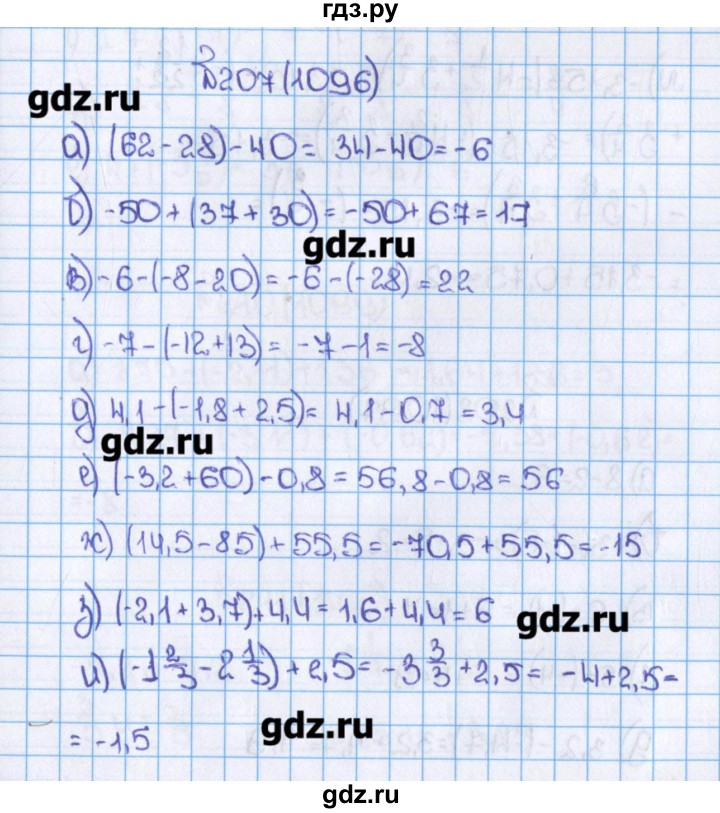 гдз.ру
№207(1096)
gdz.ru
а) (62-28)-40= 34-40=-6
б) -50+(37+30)=-50+67=17
gdz.ru
в) -6-(-8-20)=-6-(-28)=22
г) -7-(-12+13)= -7-1=-8
д) 4,1-(-1,8+2,5)= 4,1-0,7=3,4
gdz.ru
е) (-3,2+60)-0,8=56,8-0,8=56
ж) (14,5-85)+55,5=-70,5+55,5=-15
з) (-2,1+3,7)+4,4=1,6+4,4=6
gdz.ru
и) (-1 2/3-2 1/3)+2,5= -3 3/3+2,5= -4+2,5=
= -1,5
gdz.ru
gdz.ru